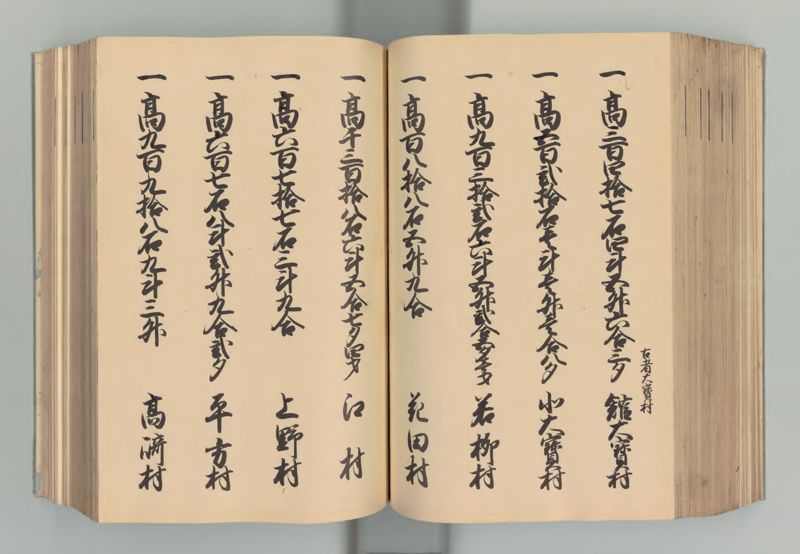 一 高三百四拾七石四斗五舛六合三夕 舘大寳村
古者大寳村
一 高三百弐拾石壱斗壱舛壱合八夕 小大寳村
一 高九百三拾弐石六斗五舛弐合 若柳村
一 高百八拾八石五舛九合 花田村
一 高千三百拾八石六斗五合七夕四才 江村
一 高六百七拾七石三斗九合 上野村
一 高六百七石八斗弐舛九合弐夕 平方村
一 高九百九拾八石九斗三舛 高﨑村